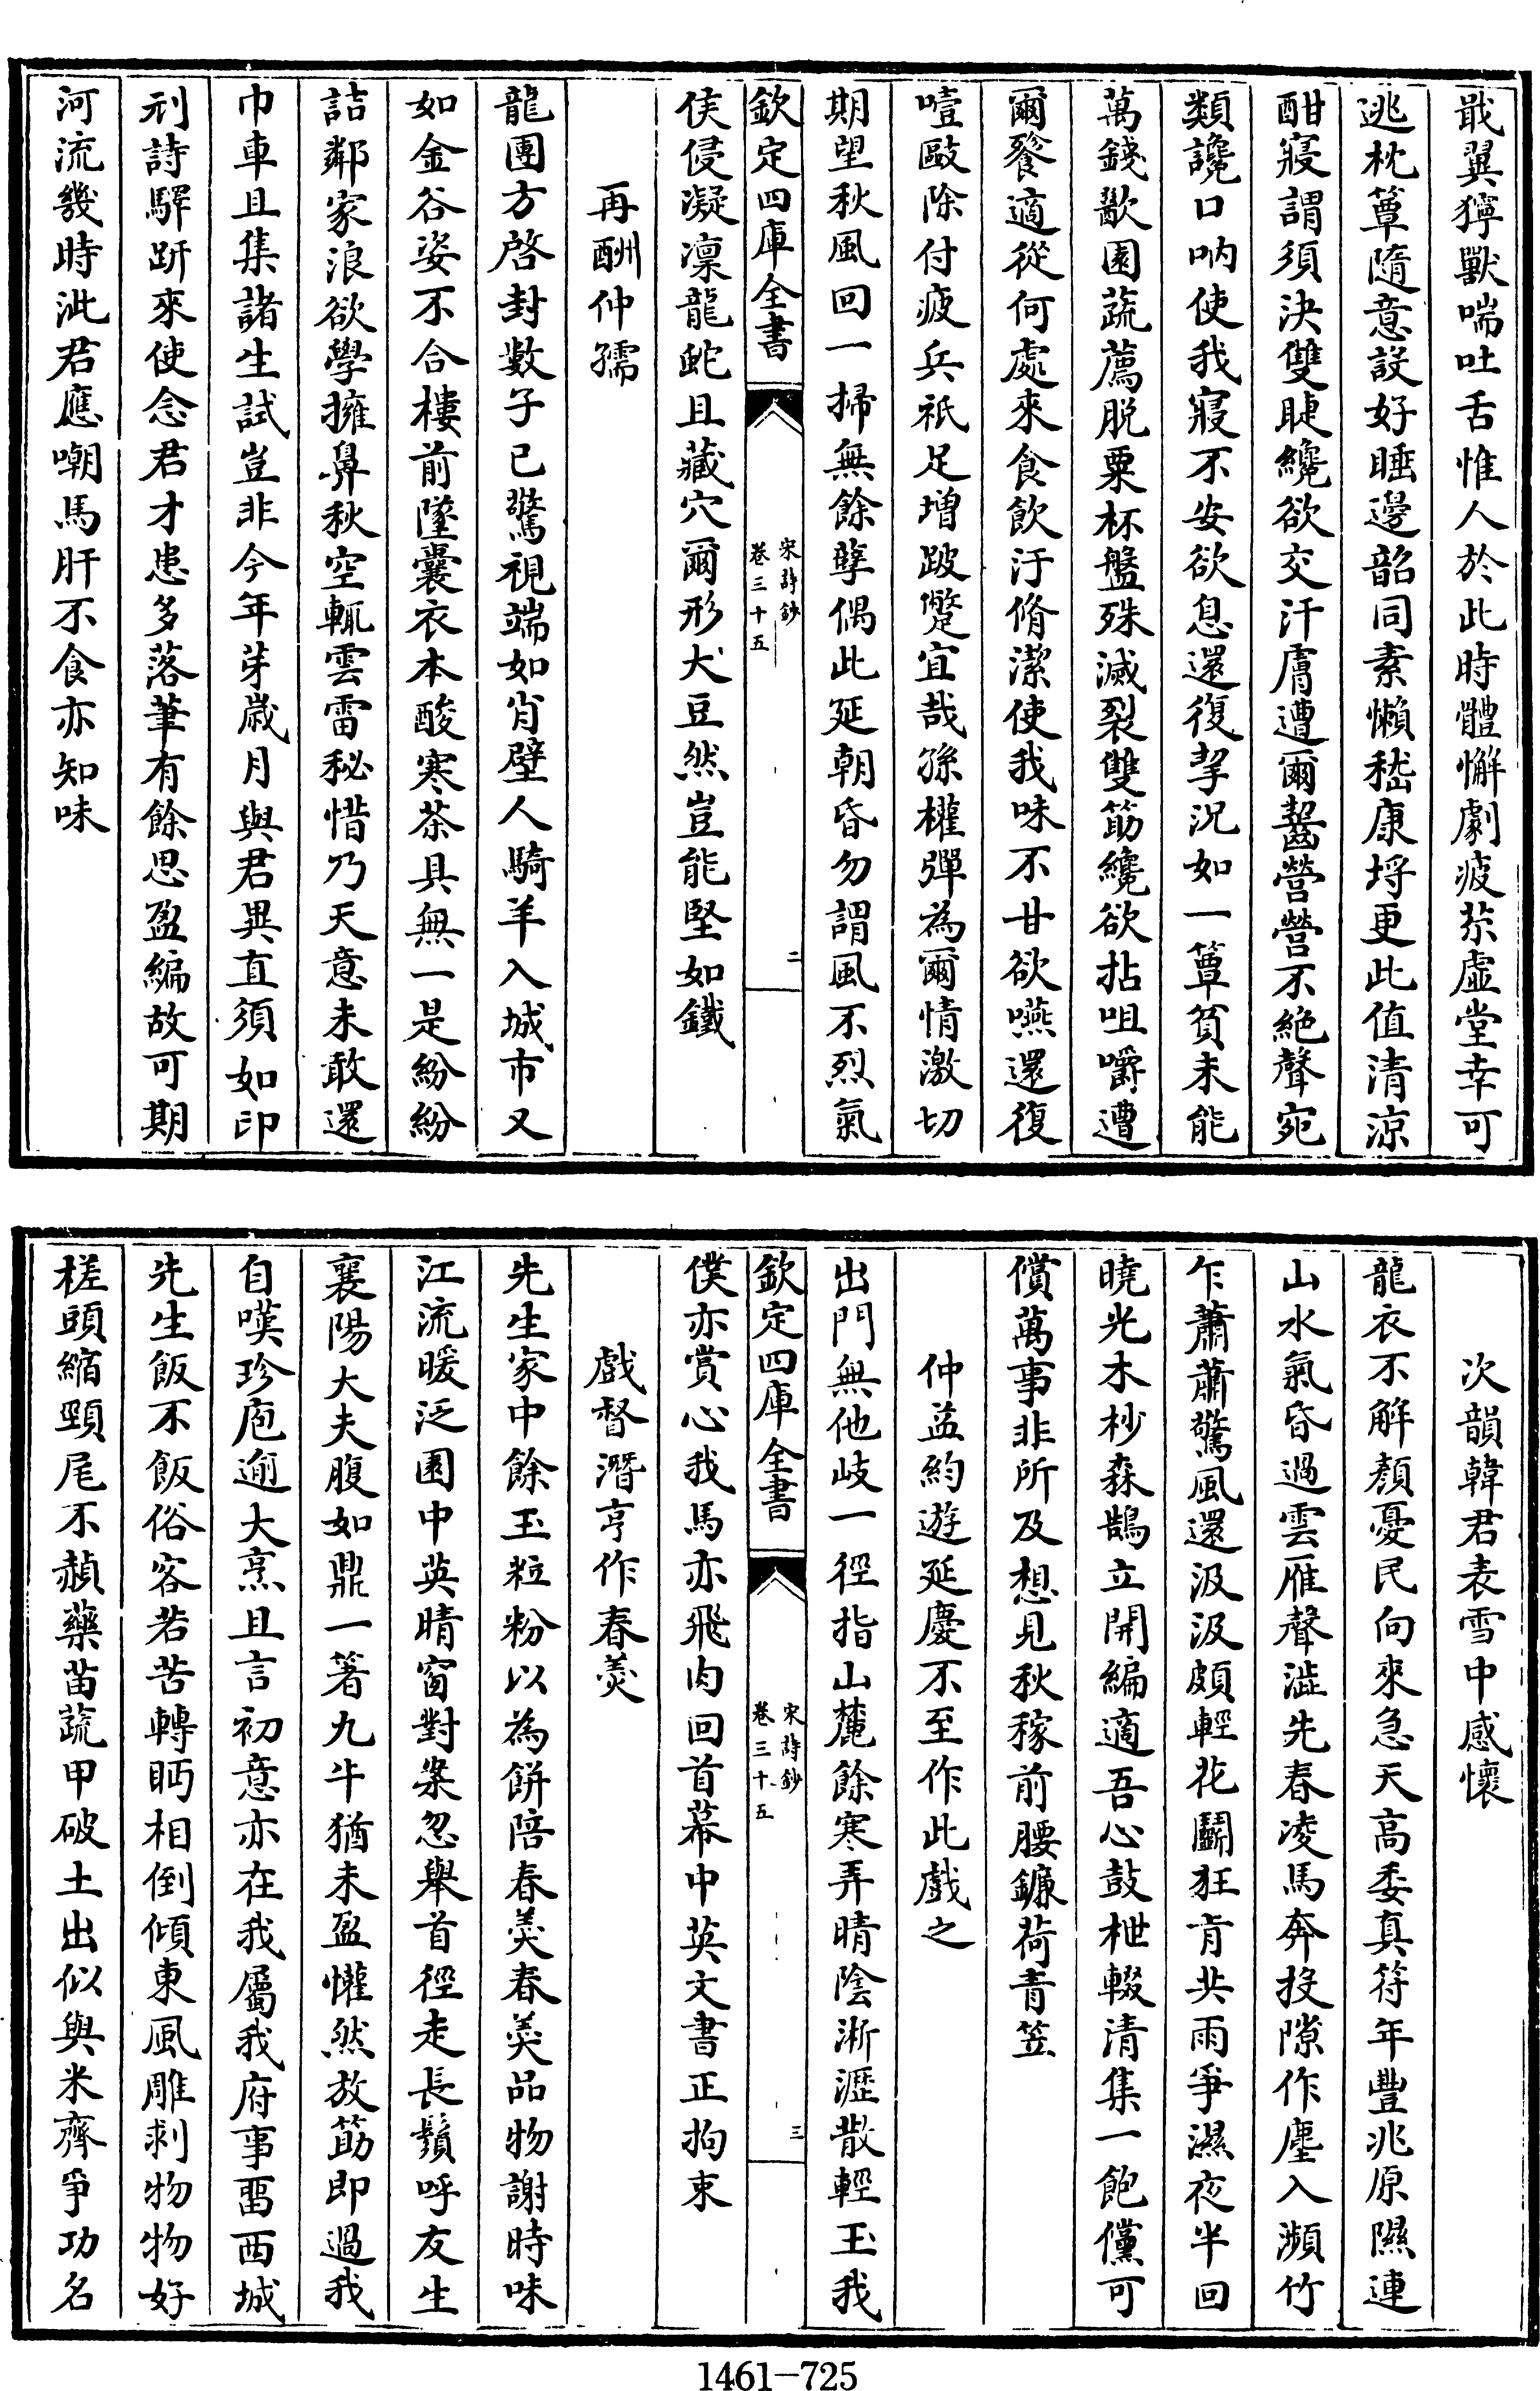 戢翼獰獸喘吐舌惟人於此時體懈劇疲苶虛堂幸可
逃枕簟隨意設好睡邊韶同素懶嵇康埒更此值清涼
酣寢謂須決雙睫纔欲交汗膚遭爾齧營營不絶聲宛
類讒口吶使我寢不安欲息還復挈況如一簞貧未能
萬錢歠園蔬薦脱粟杯盤殊滅裂雙筯纔欲拈咀嚼遭
爾餮適從何處來食飲汙脩潔使我味不甘欲嚥還復
噎毆除付疲兵祇足增跛躄宜哉孫權彈為爾情激切
期望秋風回一掃無餘孽偶此延朝昏勿謂風不烈氣
欽定四庫全書
宋詩鈔
卷三十五
二
侯侵凝凜龍蛇且藏穴爾形犬豆然豈能堅如鐵
再酬仲孺
龍團方啓封數子已驚視端如肖壁人騎羊入城市又
如金谷姿不合樓前墜囊衣本酸寒茶具無一是紛紛
詰鄰家浪欲學擁鼻秋空輒雲雷秘惜乃天意未敢還
巾車且集諸生試豈非今年芽歲月與君異直須如印
刓詩驛趼來使念君才患多落筆有餘思盈編故可期
河流幾時泚君應嘲馬肝不食亦知味
次韻韓君表雪中感懷
龍衣不解顏憂民向來急天高委真符年豐兆原隰連
山水氣昏過雲雁聲澁先春凌馬奔投隙作塵入瀕竹
乍蕭蕭驚風還汲汲頗輕花鬭狂肯共雨爭濕夜半回
曉光木杪森鵠立開編適吾心鼓枻輟清集一飽儻可
償萬事非所及想見秋稼前腰鐮荷青笠
仲益約遊延慶不至作此戲之
出門無他岐一徑指山麓餘寒弄晴陰淅瀝散輕玉我
欽定四庫全書
宋詩鈔
卷三十五
三
僕亦賞心我馬亦飛肉回首幕中英文書正拘束
戲督潛亨作春羮
先生家中餘玉粒粉以為餅陪春羮春羮品物謝時味
江流暖泛園中英晴窗對案忽舉首徑走長鬚呼友生
襄陽大夫腹如鼎一著九牛猶未盈懽然放筯即過我
自嘆珍庖逾大烹且言初意亦在我屬我府事畱西城
先生飯不飯俗客若苦轉眄相倒傾東風雕刹物物好
槎頭縮頸尾不赬藥苗蔬甲破土出似與米齊爭功名
1461-725